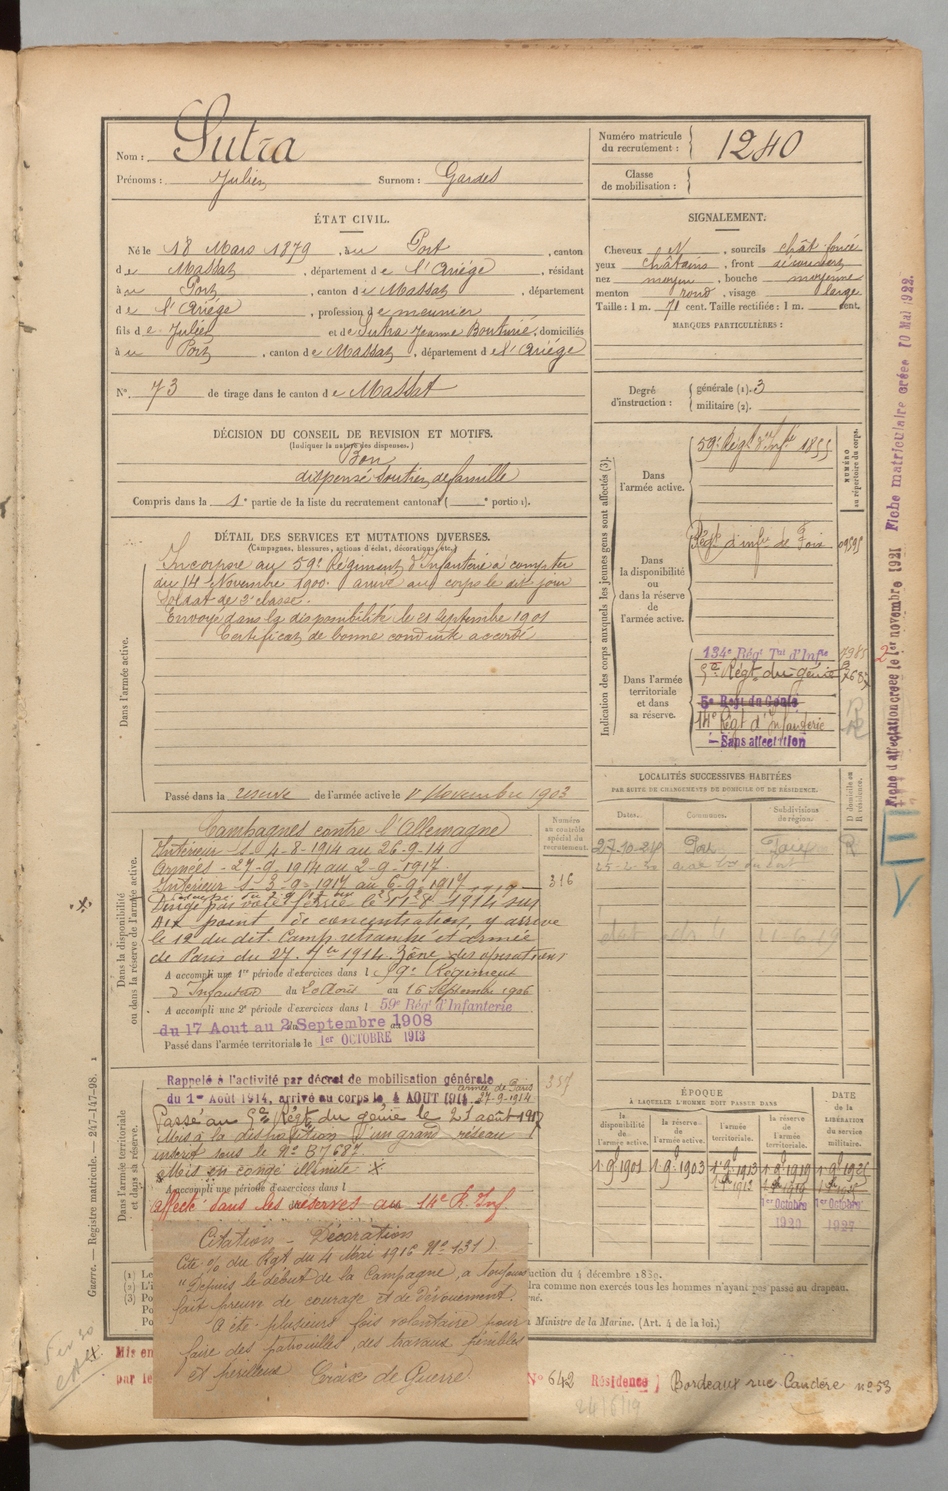 Nom : Sutra
Prénoms : Julien Surnom : Gardes
Numéro matricule du recrutement : 1240
Classe de mobilisation :
ÉTAT CIVIL.
Né le 18 Mars 1879, à u Port, canton
de Massat, département de l'Ariège, résidant
à u Port, canton de Massat, département
de l'Ariège, profession de meunier
fils de Julien et de Sutra Jeanne, domiciliés
à u Port, canton de Massat, département de l'Ariège
N° 73 de tirage dans le canton de Massat
SIGNALEMENT.
Cheveux N, sourcils chât foncé
yeux châtains, front découvert
nez moyen, bouche moyenne
menton rond, visage large
Taille : 1 m. 71 cent. Taille rectifiée : 1 m. cent.
MARQUES PARTICULIÈRES :
Degré d'instruction : générale (1). 3
militaire (2).
DÉCISION DU CONSEIL DE REVISION ET MOTIFS.
(Indiquer la nature des dispenses.)
Bon
dispensé soutien de famille
Compris dans la 1e partie de la liste du recrutement cantonal ( e portion).
DÉTAIL DES SERVICES ET MUTATIONS DIVERSES.
(Campagnes, blessures, actions d'éclat, décorations, etc.)
Dans l'armée active.
Incorporé au 59e Régiment d'Infanterie à compter
du 14 Novembre 1900. arrivé au corps le dit jour
Soldat de 2e classe.
Envoyé dans la disponibilité le 21 Septembre 1901
Certificat de bonne conduite accordé
Passé dans la réserve de l'armée active le 1er Novembre 1903
Indication des corps auxquels les jeunes gens sont affectés (3).
NUMÉRO au répertoire du corps.
Dans l'armée active.
59e Régt d'Infie 1855
Dans la disponibilité ou dans la réserve de l'armée active.
Régt d'infie de Foix
Dans l'armée territoriale et dans sa réserve.
134e Régt Tal d'Infie
5e Régt du génie
5e Régt du Génie
14e Régt d'Infanterie
— Sans affectation
LOCALITÉS SUCCESSIVES HABITÉES
PAR SUITE DE CHANGEMENTS DE DOMICILE OU DE RÉSIDENCE.
Dates. Communes. Subdivisions de région. D domicile ou R résidence.
Dans la disponibilité ou dans la réserve de l'armée active.
Numéro au contrôle spécial du recrutement.
316
Campagnes contre l'Allemagne
Intérieur S. 4-8-1914 au 26-9-14
Armées - 27-9-1914 au 2-9-1917
Intérieur S - 3-9-1917 au 6-9-1917
Dirigé par voie ferrée le 11 1914 sur
Aix point de concentration, y arrive
le 12 du dit. Camp retranché et armée
de Paris du 27. 7bre 1914. Zone des opérations
A accompli une 1re période d'exercices dans l 59e Régiment
d'Infanterie du 20 Août au 16 Septembre 1906
A accompli une 2e période d'exercices dans l 59e Régt d'Infanterie
du 17 Aout au 2 Septembre 1908
Passé dans l'armée territoriale le 1er OCTOBRE 1913
Dans l'armée territoriale et dans sa réserve.
Rappelé à l'activité par décret de mobilisation générale
du 1er Août 1914, arrivé au corps le 4 AOUT 1914 armée de Paris 27-9-1914
Passé au 5e Régt du génie le 21 août 1917
Mis à la disposition d'un grand réseau
inscrit sous le N° B7687
Mis en congé illimité X
A accompli une période d'exercices dans l
affecté dans les réserves au 14e R. Inf.
ÉPOQUE À LAQUELLE L'HOMME DOIT PASSER DANS
la disponibilité de l'armée active. la réserve de l'armée active. l'armée territoriale. la réserve de l'armée territoriale. DATE de la LIBÉRATION du service militaire.
1 9 1901 1 9 1903 1 9 1913 1 9 1919
1er Octobre 1920 1er Octobre 1927
Citations - Décoration
Cité % du Rgt du 4 Mai 1916 N° 131).
"Depuis le début de la Campagne, a toujours
fait preuve de courage et de dévouement.
A été plusieurs fois volontaire pour
faire des patrouilles, des travaux pénibles
et périlleux Croix de Guerre
(1) Le
(2) L'i
(3) Po
Po
uction du 4 décembre 1889.
dra comme non exercés tous les hommes n'ayant pas passé au drapeau.
Ministre de la Marine. (Art. 4 de la loi.)
Mis en
par le
N° 642 Résidence } Bordeaux rue Candère n° 53
24/6/19
Guerre. — Registre matricule. — 247-147-98.
Fiche d'affectation créée le 1er novembre 1921 Fiche matriculaire créée 10 Mai 1922.